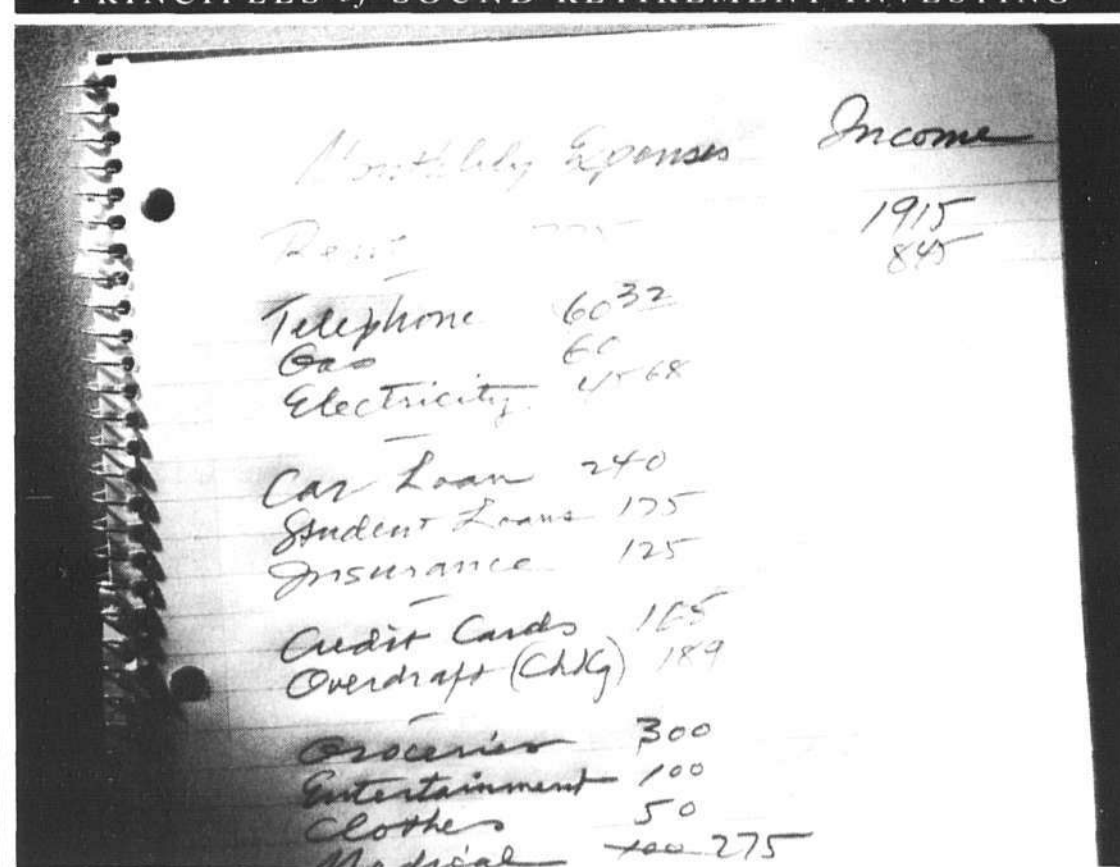 PRINCIPLES of SOUND RETIREMENT INVESTING
Monthlly Epenses Income
Rent 775 1915
845
Telephone 60 32
Gas 60
Electricity 45 68
Car Loan 240
Student Loans 175
Insurance 125
Credit Cards 165
Overdraft (ChKg) 189
Groceries 300
Entertainment 100
Clothes 50
Medical 100 275